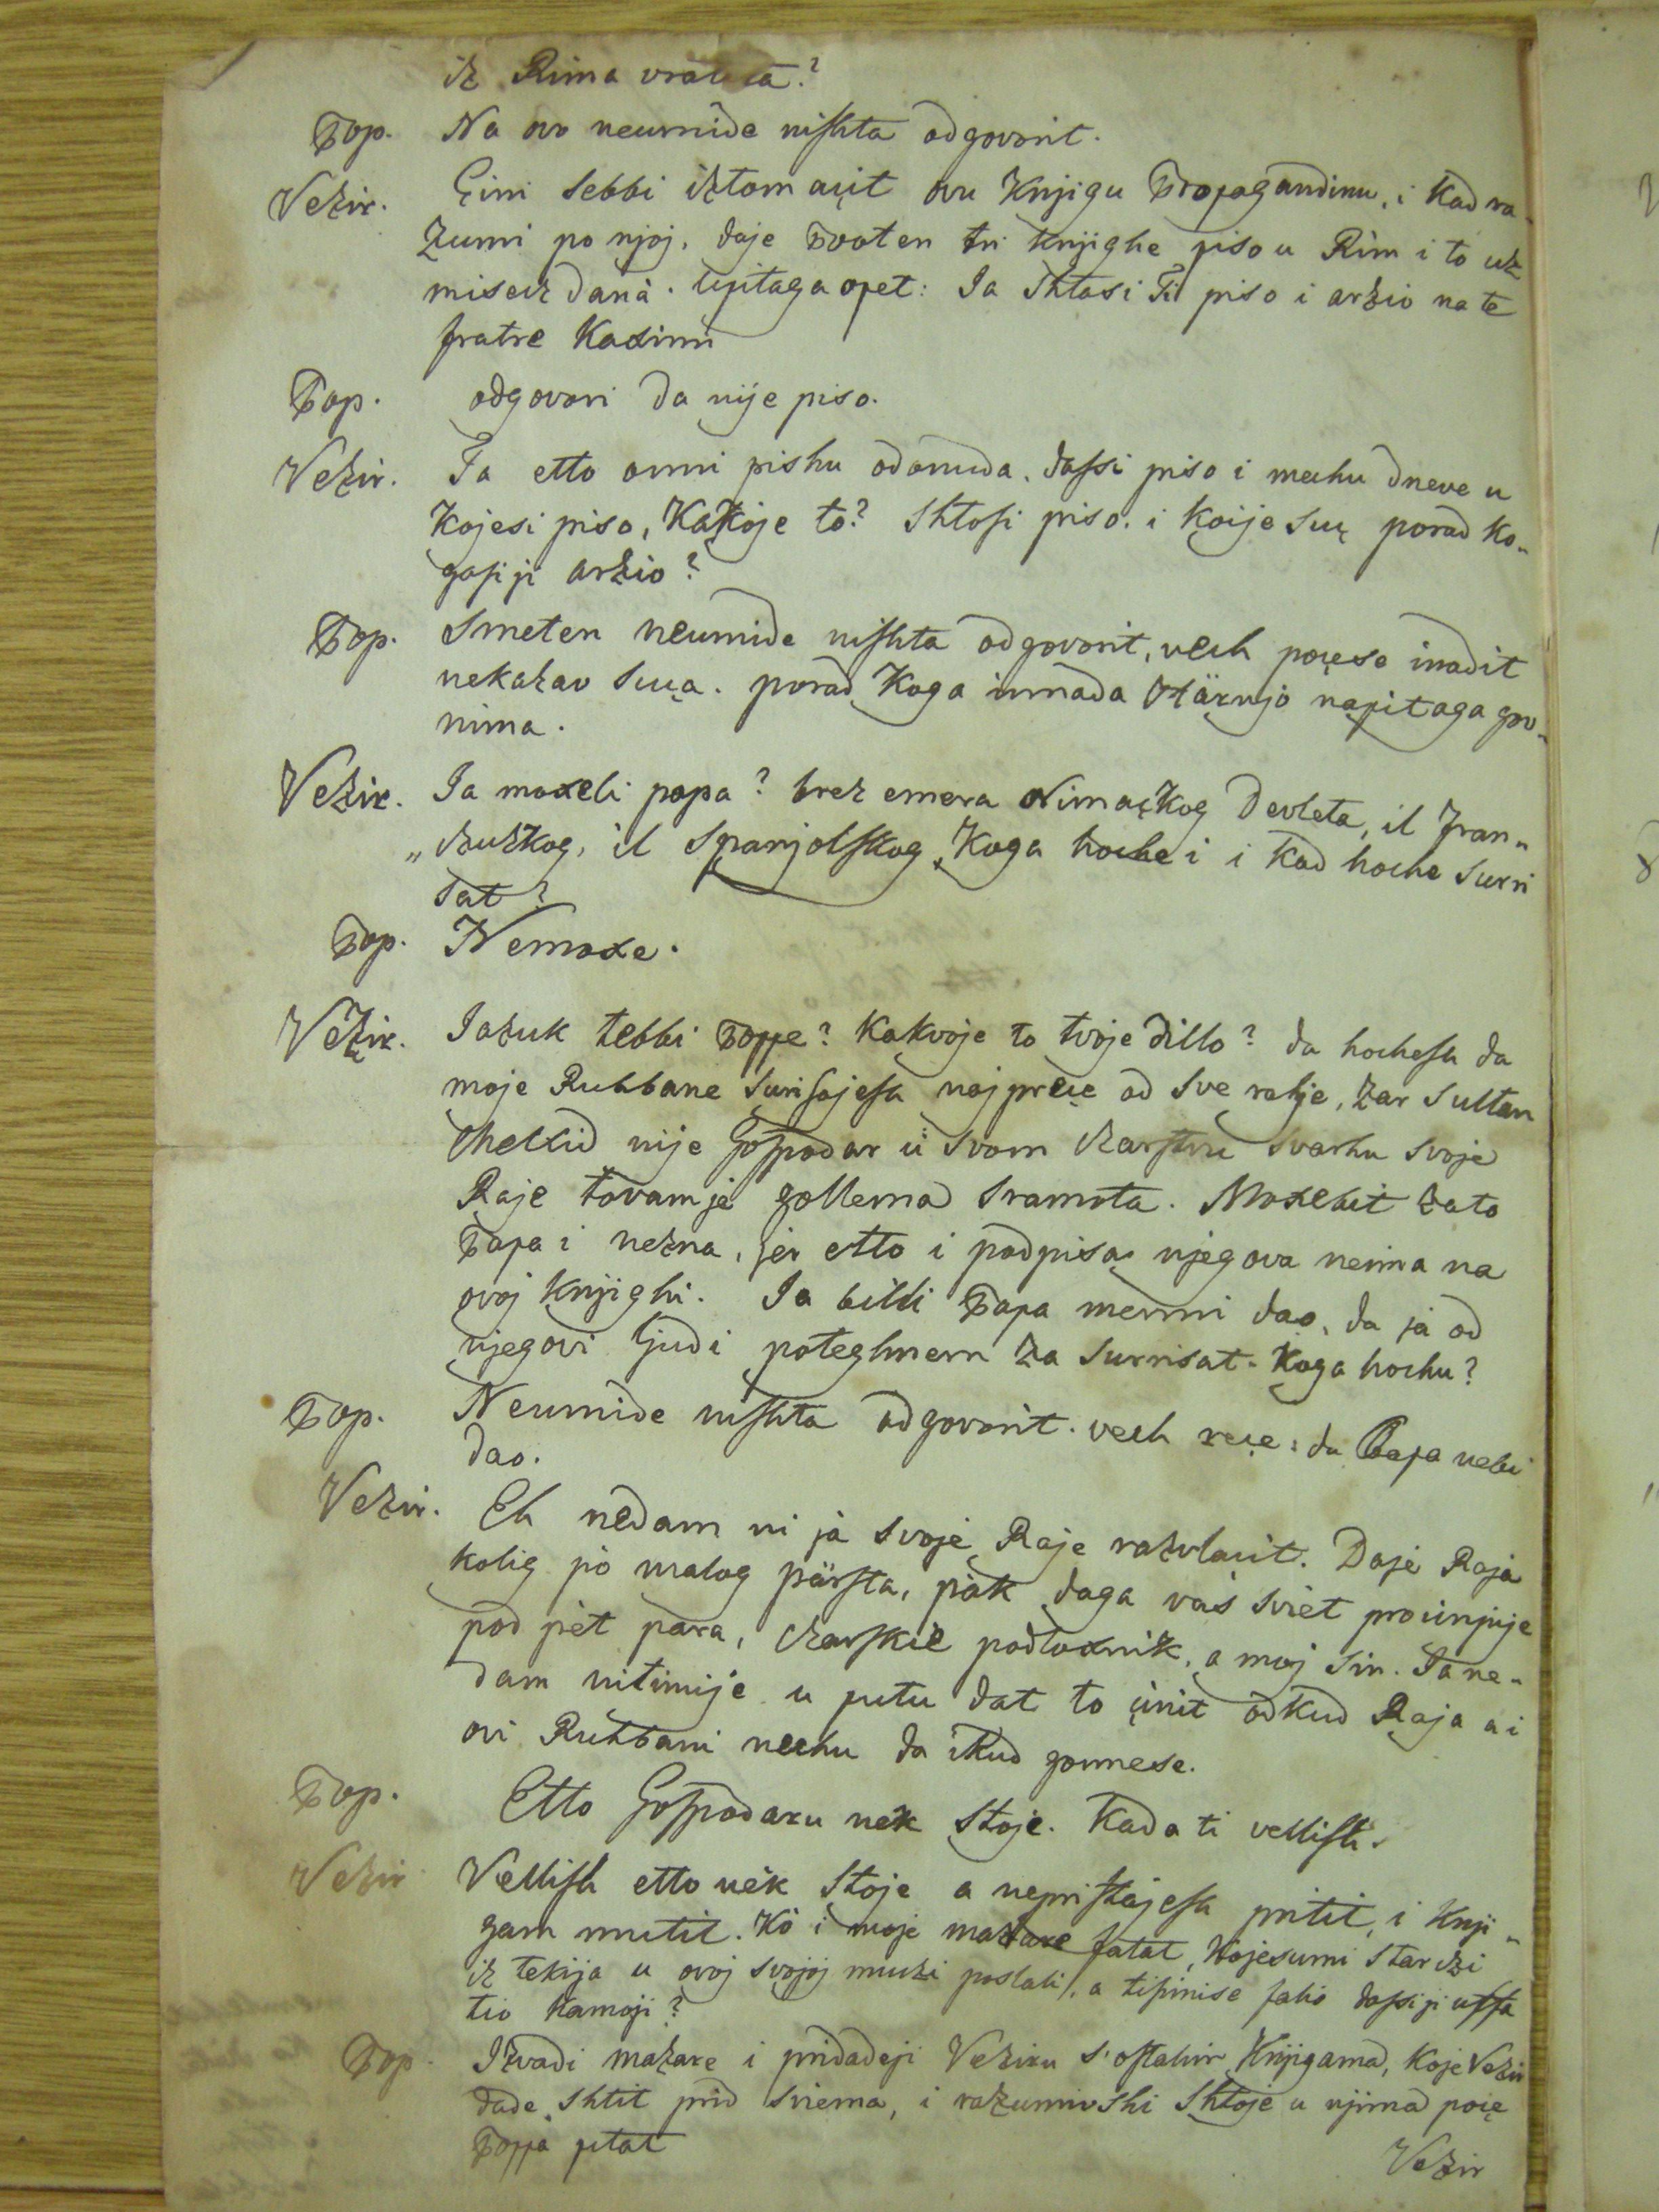 iz Rima vratita?
Pop. Na ovo neumide nishta odgovorit.
Vezir. Çini sebbi iztomaçit ovu Knjigu Propagandinu, i Kad ra-
zumi po njoj, daje Pvoten tri knjighe piso u Rim i to uz
misecz danà. Upitaga opet: Ja shtasi Ti piso i arzio na te
fratre Kaximi
Pop. odgovori da nije piso.
Vezir. Ja etto ovmi pishu odonuda, dassi piso i mechu dneve u
Kojesi piso, Kakoje to? Shtosi piso, i koije suç porad ko-
gasiji arzio?
Pop. Smeten neumide nishta odgovorit, vech poçese inadit
nekazav suça. porad Koga innada Otärnjo napitaga gov-
nima.
Vezir. Ja moxeli papa? brez emera Nimaçkog Devleta, il Fran-
„czuzkog, il Spanjolskog, Koga hoche i i Kad hoche surri
sat?
Pop. Nemoxe.
Vezir. Jazuk tebbi Poppe? Kakvoje to tvoje dillo? da hochesh da
moje Ruhbane surisajesh najpreçe od sve ratje, zar Sultan
Mexid nije Gospodar ù svom czarstvu svarhu svoje
Raje tovamje gollema sramota. Moxebit zato
Papa i nezna, jer etto i podpisa njegova neima na
ovoj knjighi. Ja billi Papa menni dao, da ja od
njegovi Gjudi poteghnem za surrisat. Koga hochu?
Pop. Neumide nishta odgovorit. vech reçe: da Papa nebi
dao.
Vezir. Eh nedam ni jà svojè Raje razvlaçit. Dajè Raja
kolig pò malog pärsta, pàk daga vàs svièt proçinjuje
pod pèt para, czarskiè podloxnik, a moj sin. Jane-
dam nitimije u putu dat to çinit odkud Raja a i
ovi Ruhbani nechu da ikud gonnese.
Pop. Etto Gospodaru nek stoje. Kada ti vellish.
Vezir Vellish etto nèk stoje a nepristajesh pritit, i Knji-
gam mutit. Kò i moje mazare fatat, Kojesumi starczi
iz tekija u ovoj svojoj muczi poslali, a tisimise falio dassiji uffa
tio Kamoji?
Pop. Izvadi mazare i pridadeji Veziru s'ostalim Knjigama, Koje Vezir
dade shtit prid sviema, i razumivshi shtoje u njima poçe
Poppa pitat
Vezir